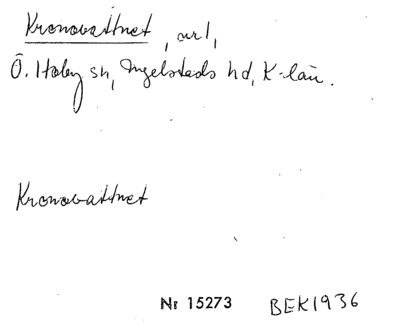 Kronovattnet, url,
Ö. Hoby sn, Ingelsteds hd, K-län.
Kronovattnet
Nr 15273 BEK1936